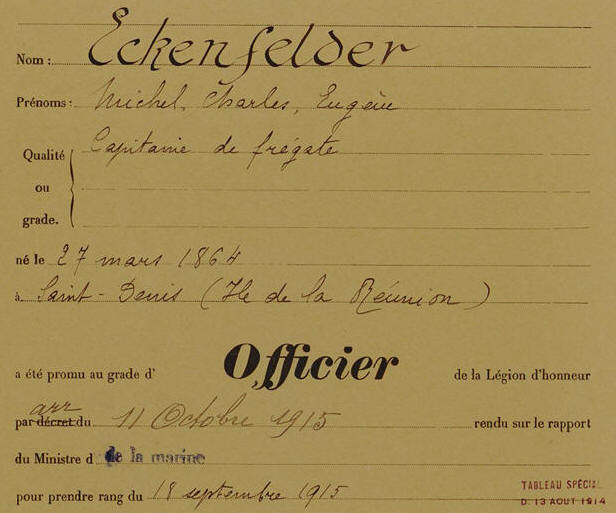 Nom : Eckenfelder
Prénoms : Michel, Charles, Eugène
Qualité ou grade. Capitaine de frégate
né le 27 mars 1864
à Saint-Denis (Ile de la Réunion)
a été promu au grade d' Officier de la Légion d'honneur
par décret arr du 11 Octobre 1915 rendu sur le rapport
du Ministre d de la marine
pour prendre rang du 18 septembre 1915
TABLEAU SPÉCIAL
D. 13 AOUT 1914